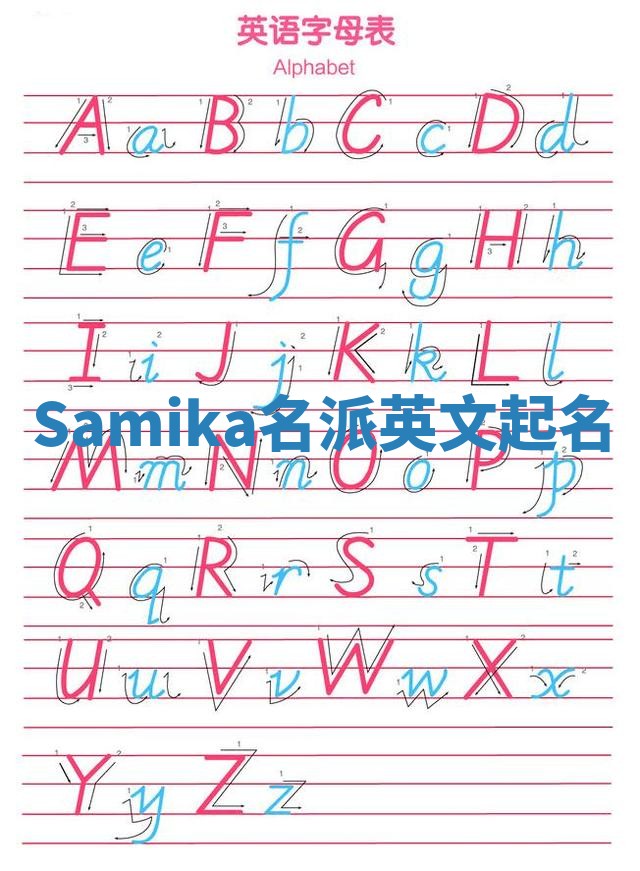 英语字母表
Alphabet
A a B b C c D d
E e F f G g H h
I i J j K k L l
Samika名派英文起名
M m N n O o P p
Q q R r S s T t
U u V v W w X x
Y y Z z